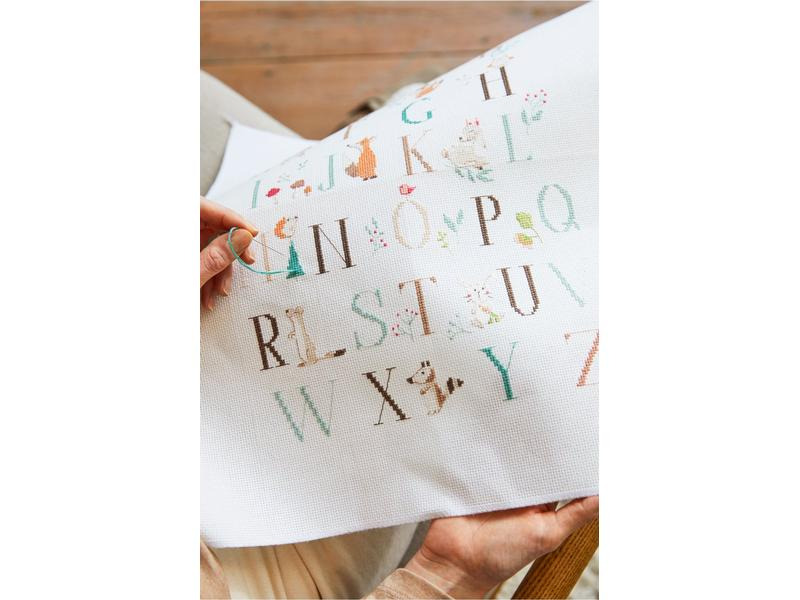 G H
I J K L
M N O P Q
R S T U
W X Y Z